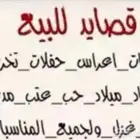 قصايد للبيع
ات_اعراس_حفلات_تخر
اد_ميلاد_حب_عتب_مد
غزل_ولجميع_المناسبا